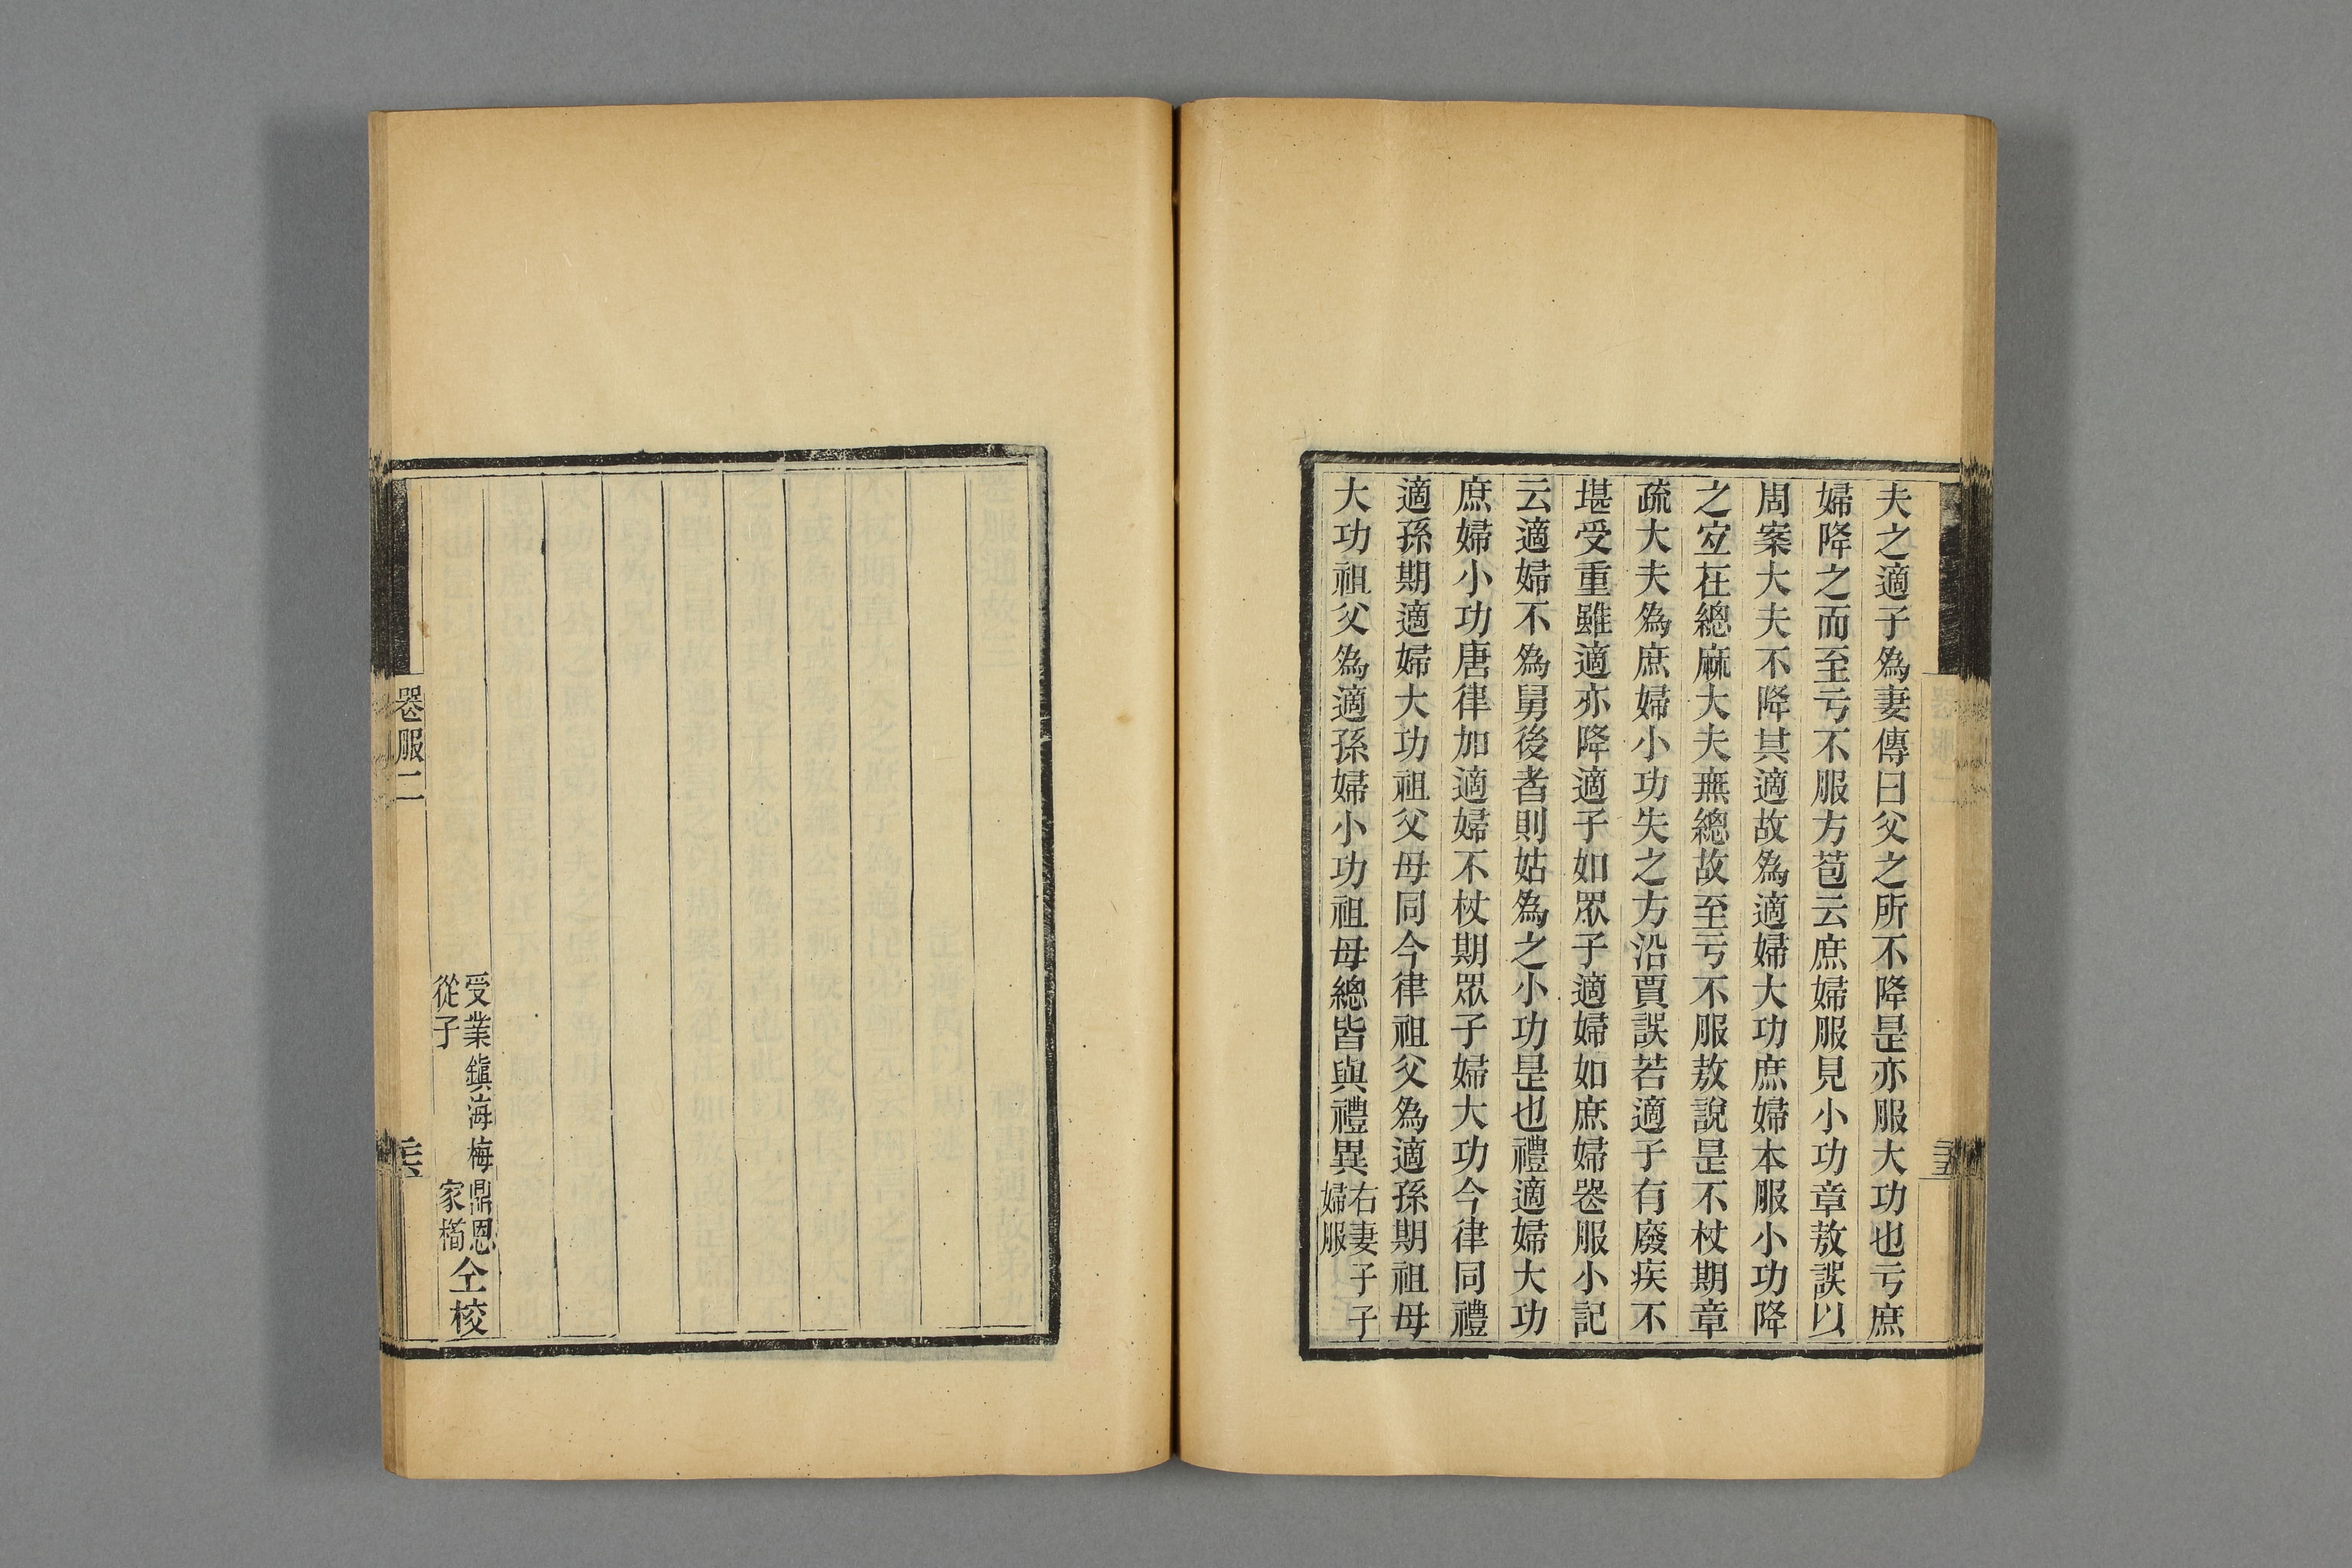 夫之適子為妻傳曰父之所不降是亦服大功也亏庶
婦降之而至亏不服方苞云庶婦服見小功章敖誤以
周案大夫不降其適故為適婦大功庶婦本服小功降
之宜在緦麻大夫無緦故至亏不服敖說是不杖期章
疏大夫為庶婦小功失之方沿賈誤若適子有廢疾不
堪受重雖適亦降適子如眾子適婦如庶婦喪服小記
云適婦不為舅後者則姑為之小功是也禮適婦大功
庶婦小功唐律加適婦不杖期眾子婦大功今律同禮
適孫期適婦大功祖父母同今律祖父為適孫期祖母
大功祖父為適孫婦小功祖母緦皆與禮異
右妻子子
婦服
喪服二
受業鎮海梅鼎恩
從子家橘
仝校